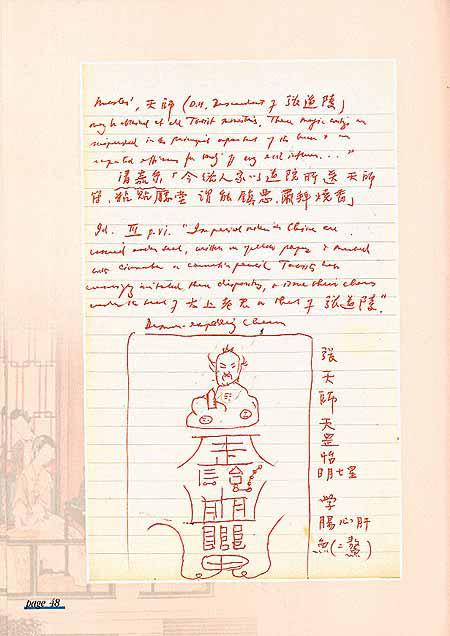 Master', 天師 ( Descendant of 張道陵)
may be obtained at all Taoist These magic are
suspended in the principal apartment of the house & are
for off any evil influence. . ."
清嘉录「今俗人家以道院所送天師
符,粘貼廳堂 謂能鎮惡,肅拜燒香」
Id. III p.vi. "Imperial orders in China are
issued under seal, written on yellow paper & marked
with cinnabar or pencil. Taoists have
imitated these & issue their charms
under the seal of 太上老君 or that of 張道陵"
Demon-expelling Charm
張
天
師
天
罡
明七星
學
腸心肝
page 48